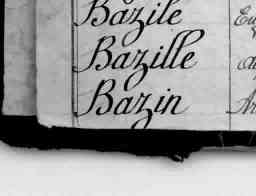 Bazile
Bazille
Bazin